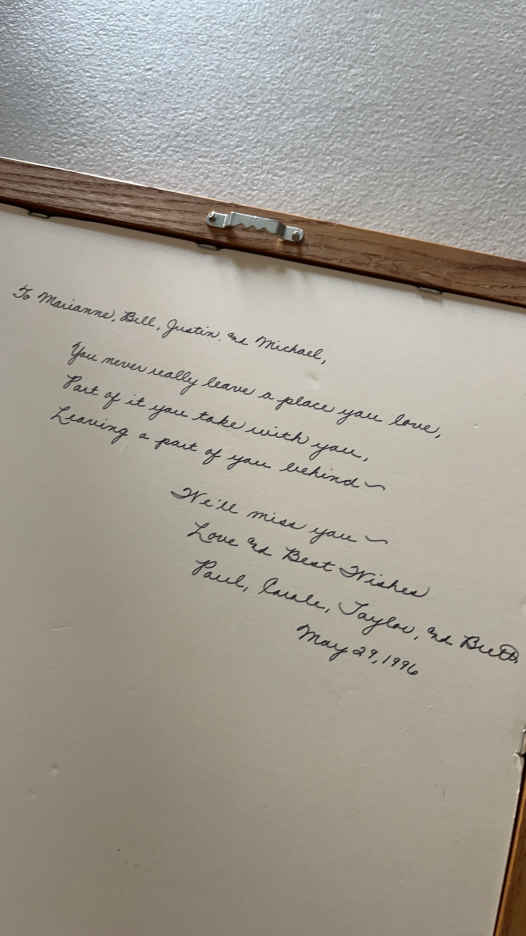 To Marianne, Bill, Justin, and Michael,
You never really leave a place you love,
Part of it you take with you,
Leaving a part of you behind~
We'll miss you ~
Love and Best Wishes
Paul, Carole, Taylor, and
May 29, 1996